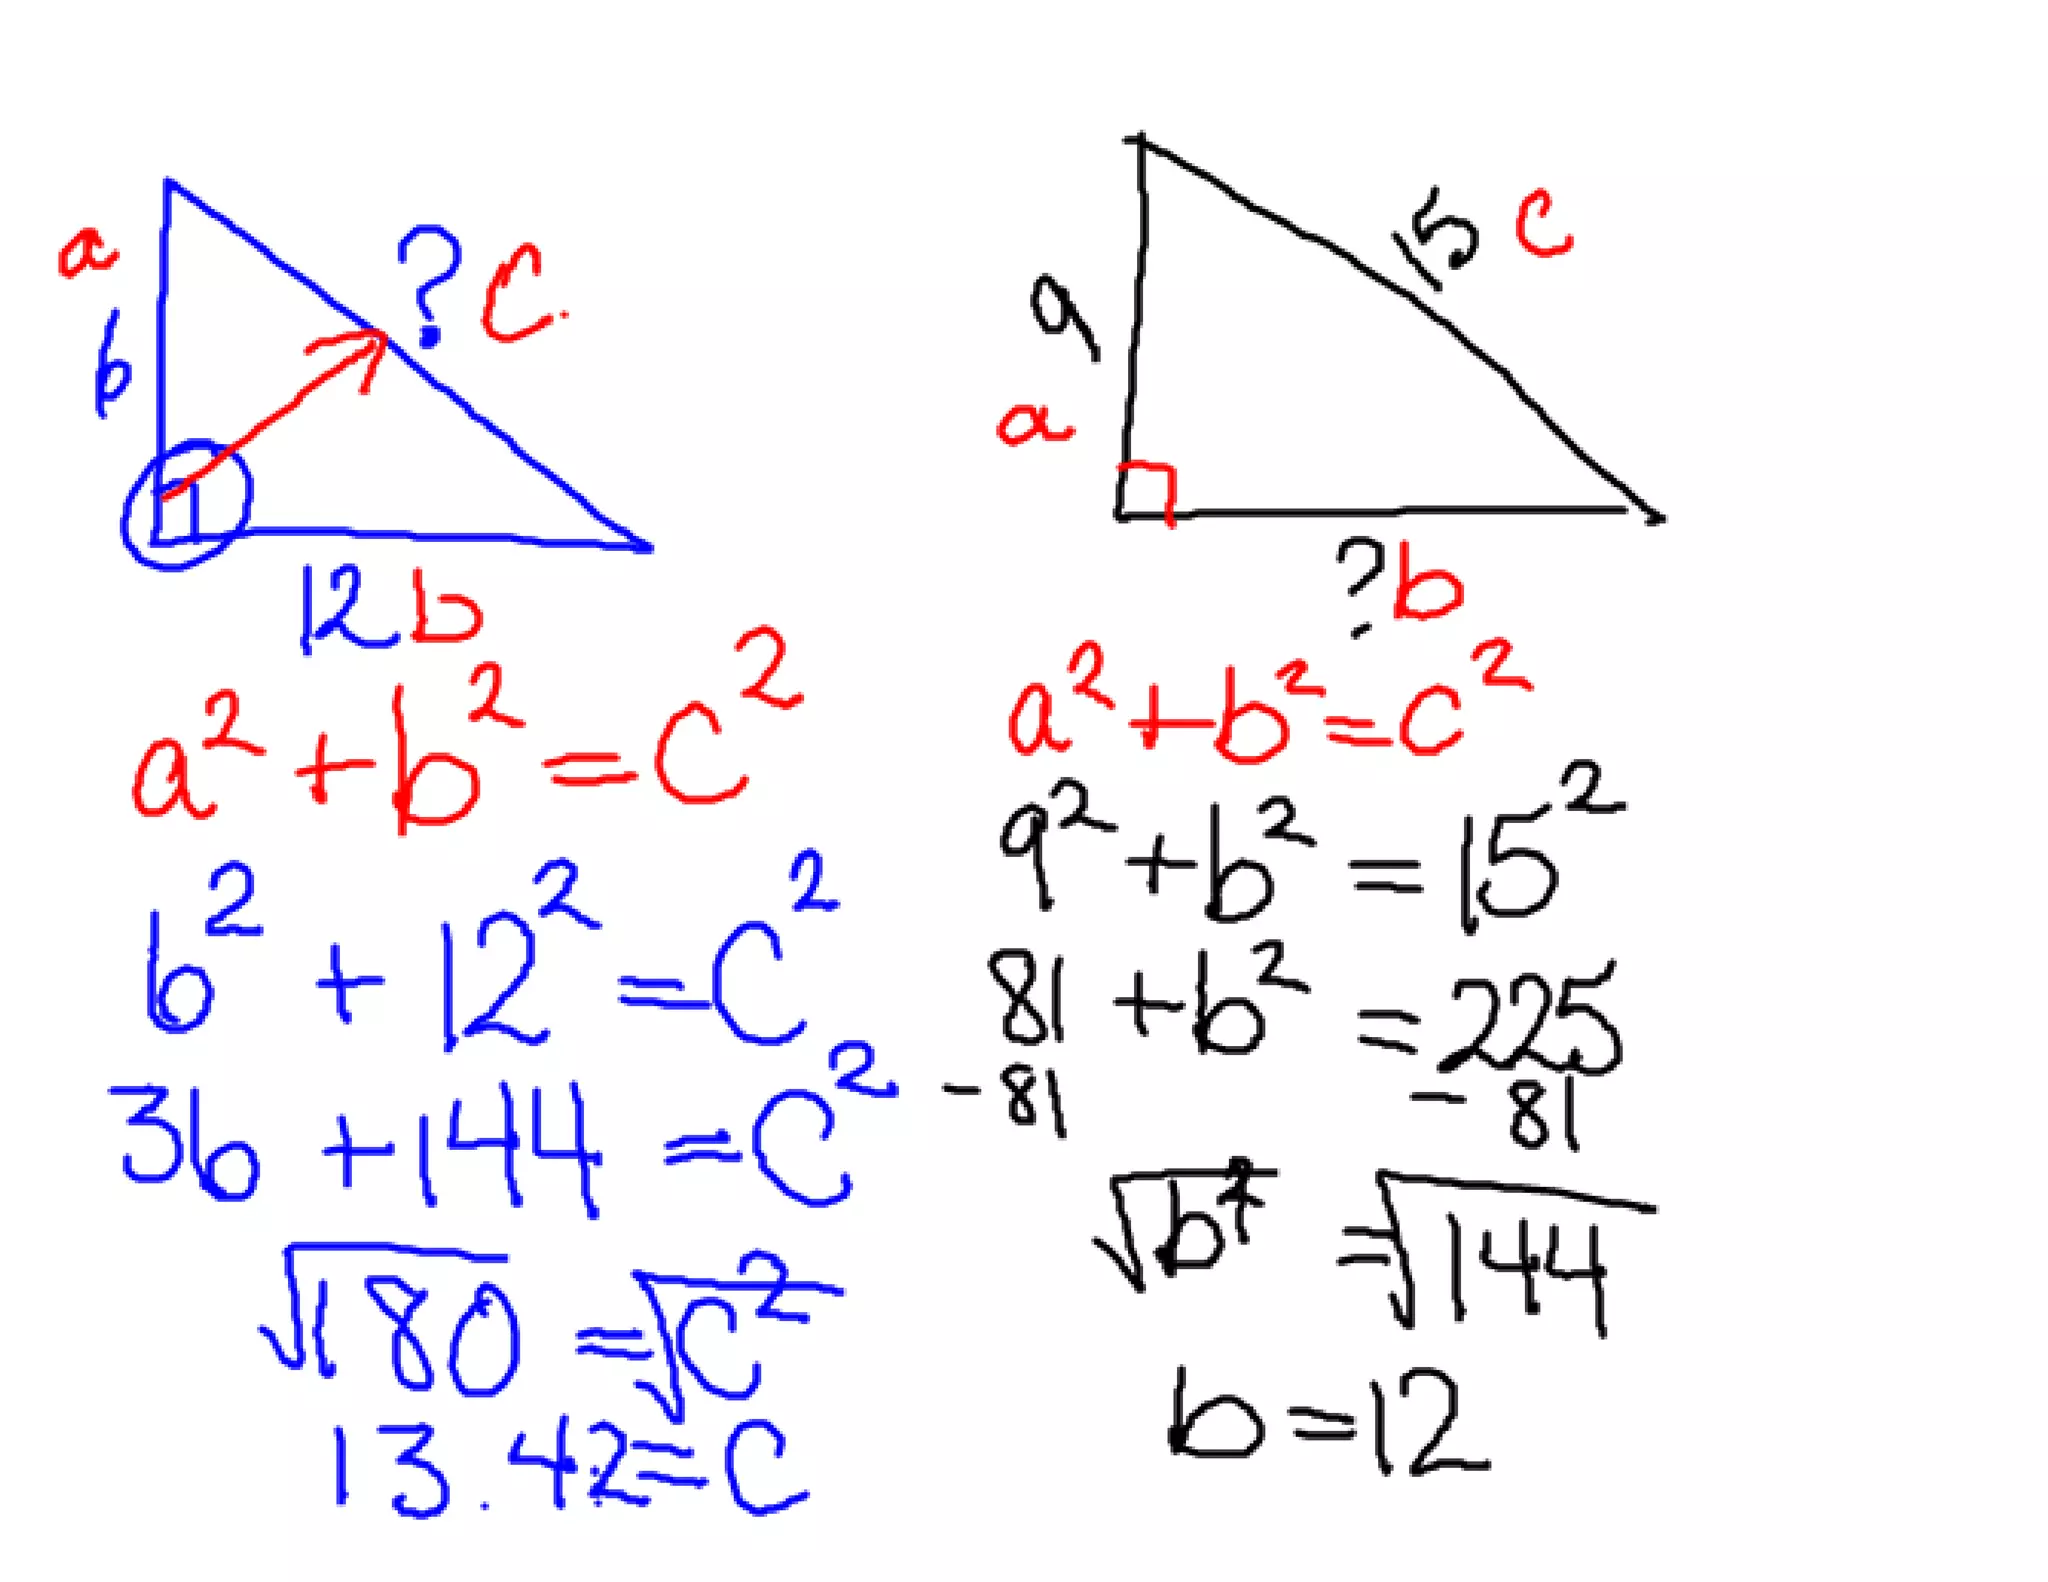 a
6
? c.
12 b
a² + b² = c²
6² + 12² = c²
36 + 144 = c²
√180 = √c²
13.42 = c
15 c
9
a
? b
a² + b² = c²
9² + b² = 15²
81 + b² = 225
- 81 - 81
√b² = √144
b = 12